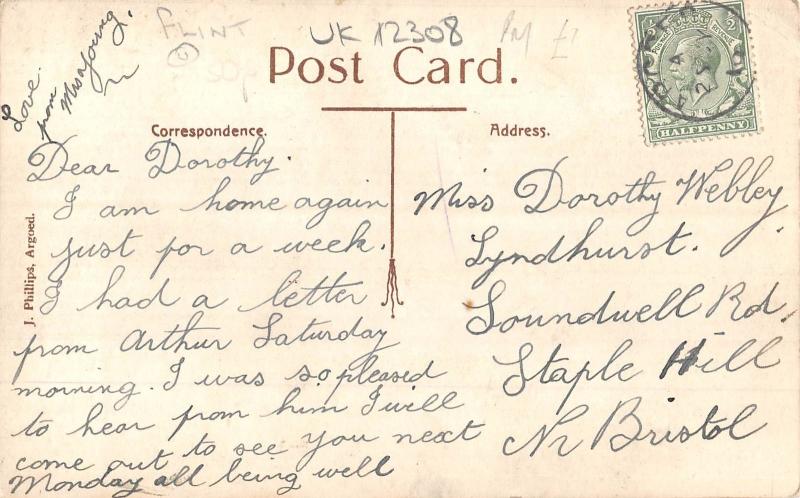 FLINT
UK 12308
PM £1
Post Card.
Correspondence.
Address.
HALFPENNY
Love.
from
Miss Young.
Dear Dorothy.
I am home again
just for a week.
I had a letter
from Arthur Saturday
morning. I was so pleased
to hear from him I will
come out to see you next
Monday all being well
Miss Dorothy Webley
Lyndhurst.
Soundwell Rd.
Staple Hill
Nr Bristol
J. Phillips, Argoed.